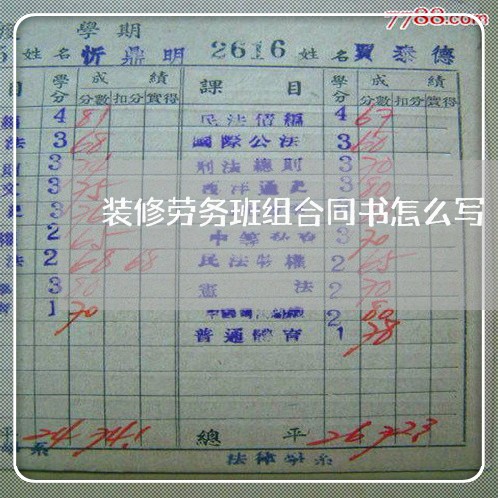 7788.com
學期
姓名 忻鼎明 2616 姓名 賈泰德
目 學分 成績 課目 學分 成績
分數 扣分 實得 分數 扣分 實得
4 81 民法債編 4 67
法 3 68 國際公法 3 60
3 刑法總則 3 70
3 75 西洋通史 3 80
装修劳务班组合同书怎么写
2 65 3 70
法 2 68 68 民法物權 2 65
3 80 憲法 2 70
1 70 2 80
普通體育 1 78
平 24 74.1 總平 26 72.3
系 法律學系